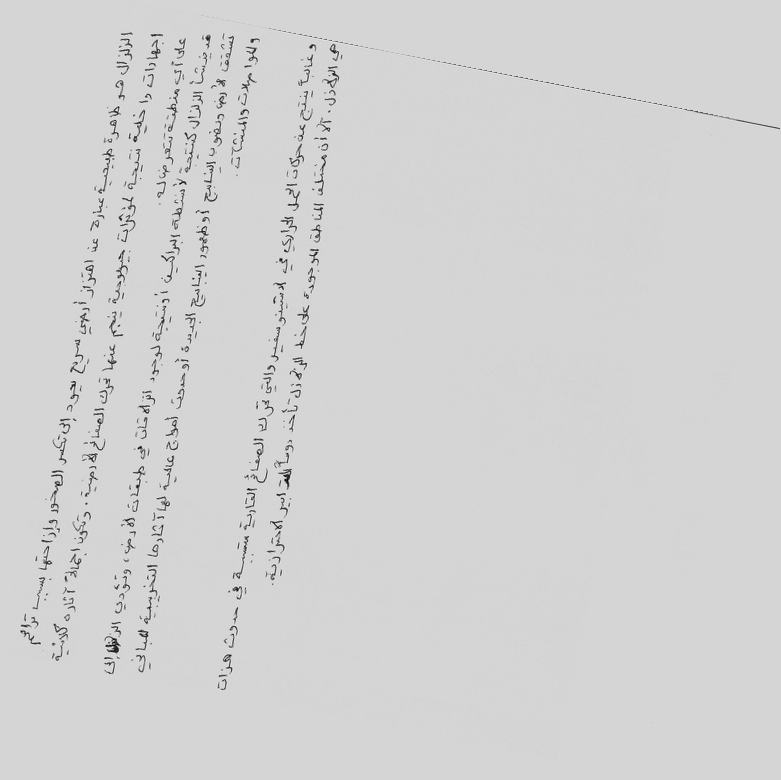 الزلزال هو ظاهرة طبيعية عبارة عن اهتزاز أرضي سريع يعود إلى تكسر الصخور وإزاحتها بسبب تراكم
اجهادات داخلية نتيجة لمؤثرات جيولوجية ينجم عنها تحرك الصفائح الأرضية. وتكون اجمالاً آثاره كارثية
على أي منطقة تتعرض له.
قد ينشأ الزلزال كنتيجة لأنشطة البراكين أو نتيجة لوجود انزلاقات في طبقات الأرض، وتؤدي الزلازل إلى
تشقق الأرض ونضوب الينابيع أو ظهور الينابيع الجديدة أو حدوث أمواج عالية لها آثارها التخريبية للمباني
والمواصلات والمنشآت.
وغالباً ينتج عنه حركات الحمل الحراري في الاثينوسفير والتي تحرك الصفائح القارية متسببة في حدوث هزات
هي الزلازل. الا أن مختلف المناطق الموجودة على خط الزلازل تأخذ دوماً التدابير الاحترازية.